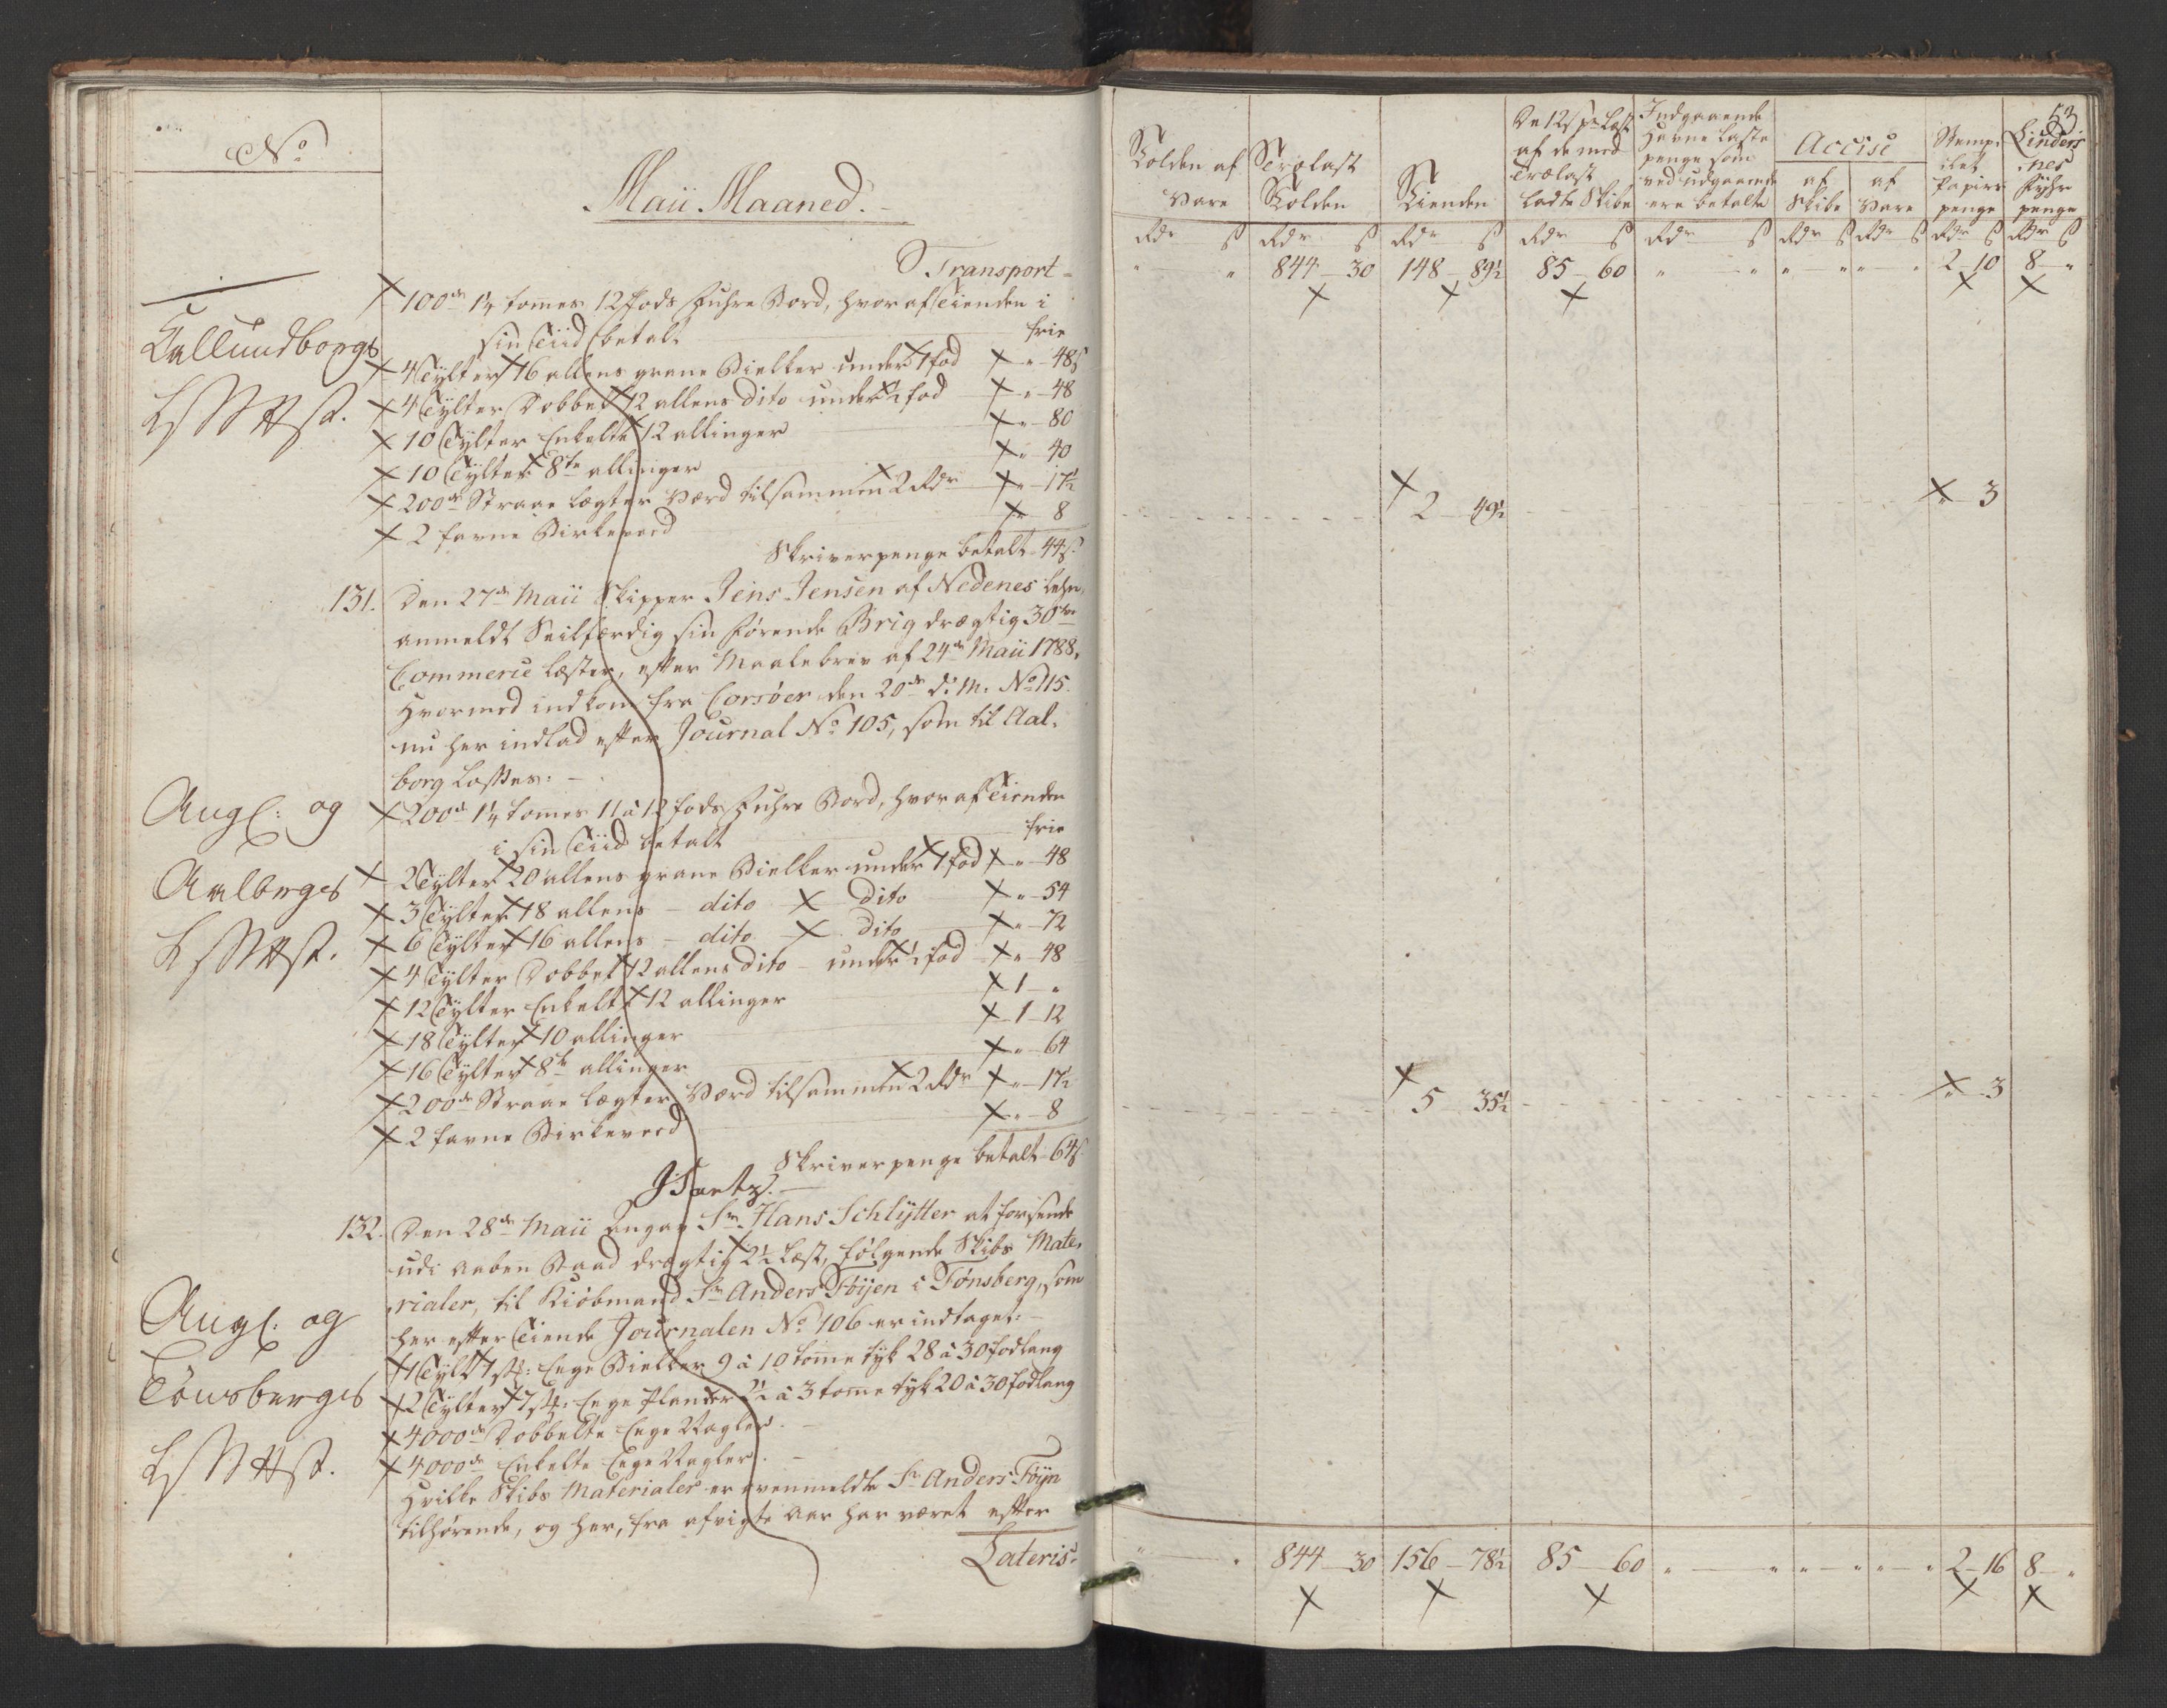 No
Maii Maaned.
Transport
100de 1¼ tommes 12 Fods Fuhre Bord, hvoraf Tienden i
sin Tiid betalt frie
Callundborgs
4 Tylter 16 allens grane Bielker under 1 fod " 48s
4 Tylter Dobbelt 12 allens dito under ½ fod " 48
10 Tylter Enkelte 12 allinger " 80
10 Tylter 8te allinger " 40
200de Straae Lægter værd tilsammen 2 Rdr " 17½
2 favne Birkeved " 8
Skriverpenge betalt 44s.
131. Den 27de Maii Skipper Jens Jensen af Nedenes Lehn,
anmeldt Seilfærdig sin førende Brig drægtig 30tve
Commerce Læster, efter Maalebrev af 24de Maii 1788,
Hvormed indkom fra Corsöer den 20de d: M. No 115.
nu her indlad efter Journal No 105, som til Aal-
borg Losses:
Angl: og
Aalborgs
200de 1¼ tommes 11 à 12 fods Fuhre Bord, hvoraf Tienden
i sin Tiid betalt frie
2 Tylter 20 allens grane Bielker under 1 fod " 48
3 Tylter 18 allens dito dito " 54
6 Tylter 16 allens dito dito " 72
4 Tylter Dobbelt 12 allens dito under ½ fod " 48
12 Tylter Enkelte 12 allinger 1 "
18 Tylter 10 allinger 1 12
16 Tylter 8te allinger " 64
200de Straae Lægter Værd tilsammen 2 Rdr " 17½
2 favne Birkeved " 8
Skriverpenge betalt 64s
132. Den 28de Maii Angav Sr. Hans Schlytter at forsende
udi aaben Baad drægtig 2½ Læst, følgende Skibs Mate-
rialer, til Kiöbmand Sr Anders Föyen i Tønsberg, som
her efter Tiende Journalen No 106 er indtaget:
Angl: og
Tönsbergs
1 Tylt 1 st: Eege Bielker 9 à 10 tomme tyk 28 à 30 fod lang
2 Tylter 7 st: Eege Planker 2½ à 3 tomme tyk 20 à 30 fod lang
4000de Dobbelte Eege Nagler.
4000de Enkelte Eege Nagler.
Hvilke Skibs Materialer er ovenmeldte Sr Anders Föyn
tilhørende, og her, fra afvigte Aar har været efter
Lateris
53
Tolden af Vare
Trælast Tolden
Tienden
De 12s pr Læst af de med Trælast ladte Skibe
Indgaaende Havne Laste penge som ved udgaaende ere betalte
Accise
af Skibe
af Vare
Stemplet Papiirs penge
Lindesnes Fyhr penge
Rdr s Rdr s Rdr s Rdr s Rdr s Rdr s Rdr s Rdr s Rdr s
" " 844 30 148 89½ 85 60 " " " " " " 2 10 8 "
2 49½ " 3
5 35½ " 3
" " 844 30 156 78½ 85 60 " " " " " " 2 16 8 "